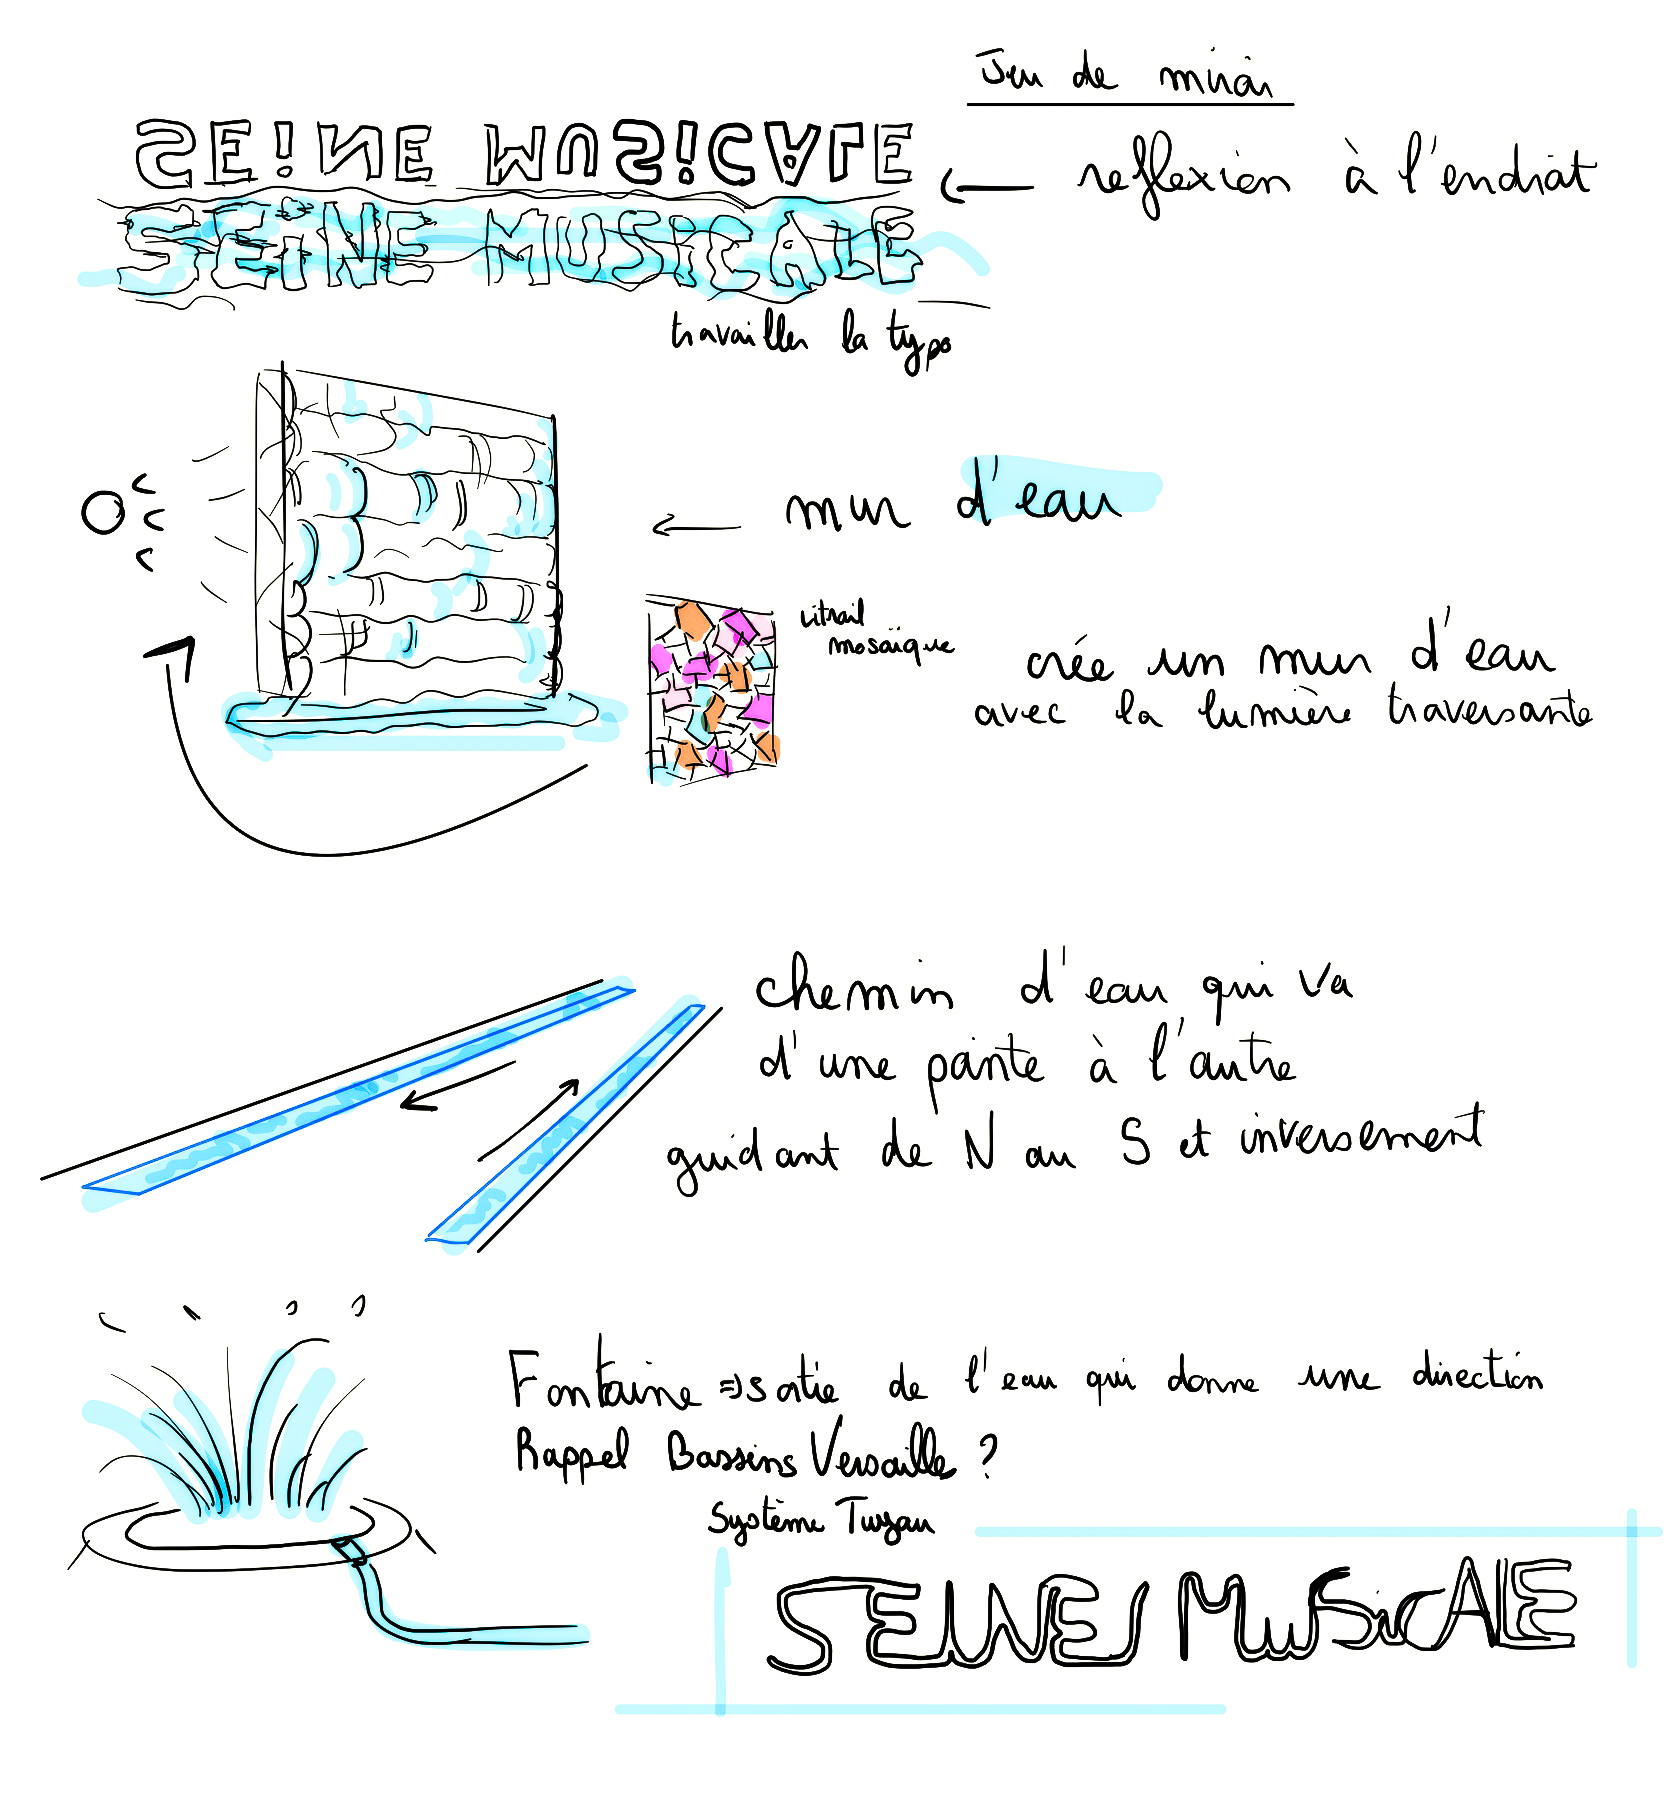 Jeu de miroir
SEINE MUSICALE
reflexion à l'endroit
SEiNE MUSiCALE
travailler la typo
mur d'eau
vitrail
mosaïque
crée un mur d'eau
avec la lumière traversante
chemin d'eau qui va
d'une pointe à l'autre
guidant de N au S et inversement
Fontaine => sortie de l'eau qui donne une direction
Rappel Bassins Versaille ?
Système Tuyau
SEINE MUSiCALE